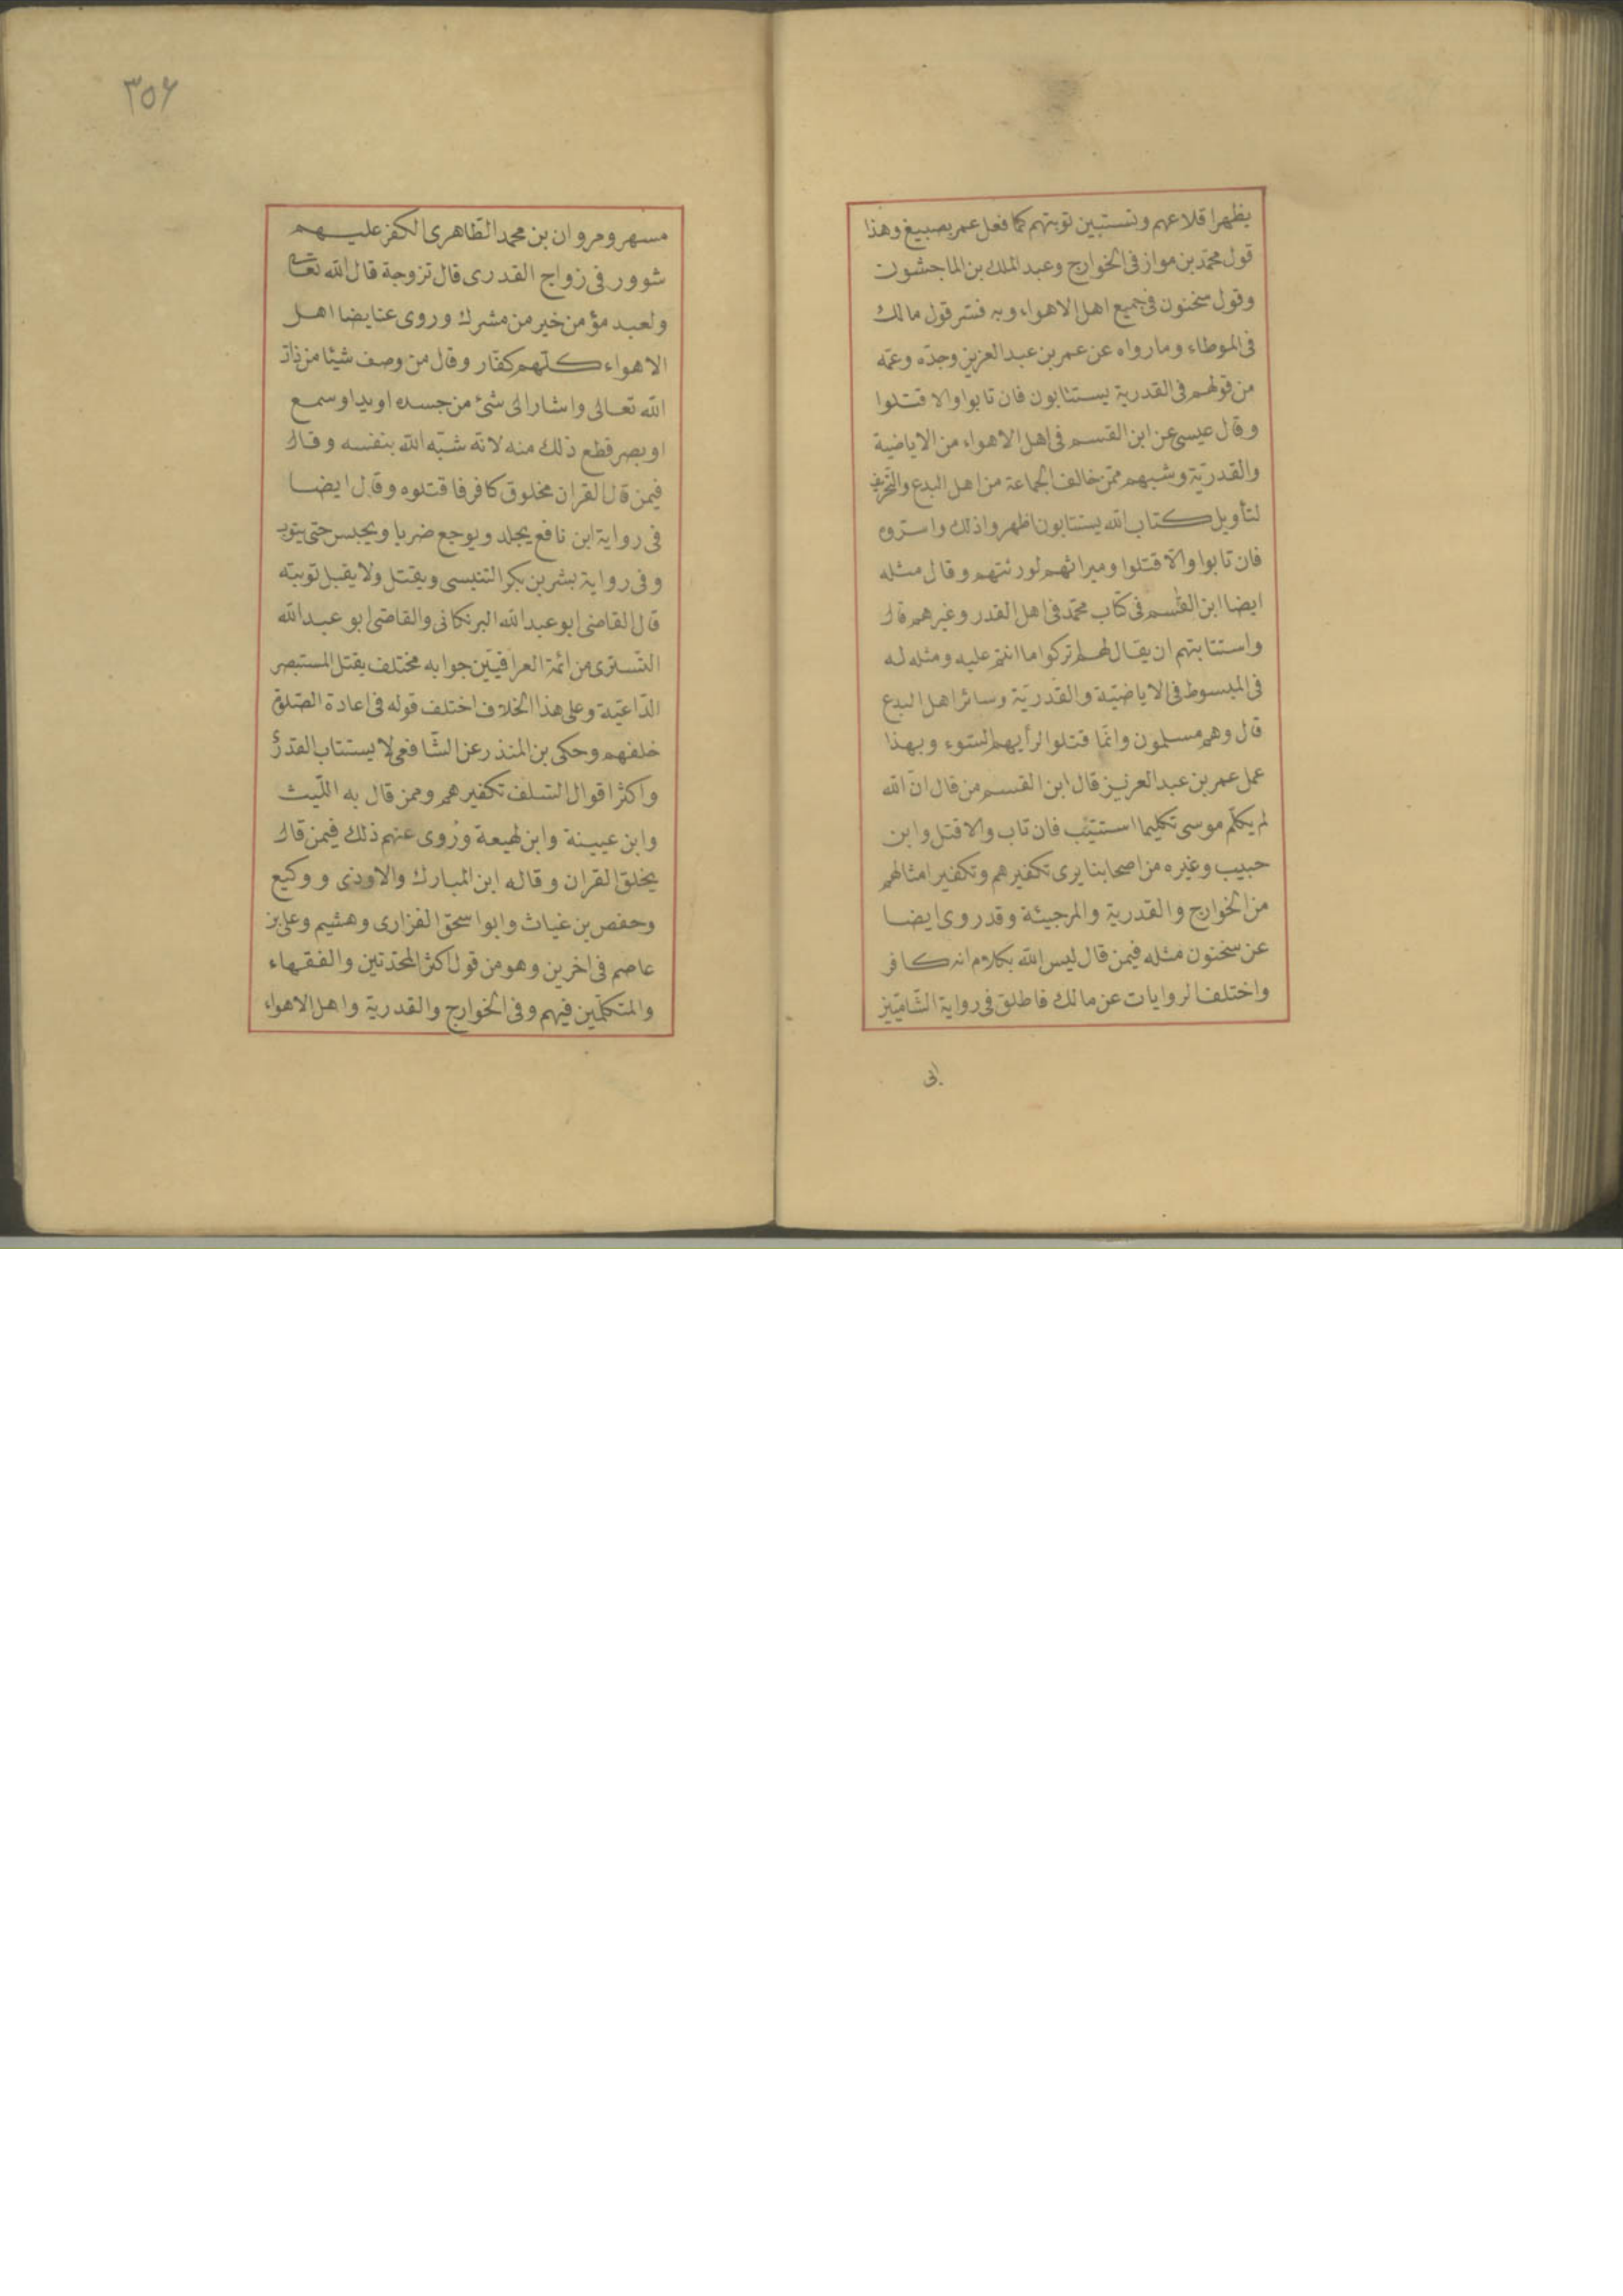 يظهر اقلاعهم وتستبين توبتهم كما فعل عمر بصبيغ وهذا
قول محمد بن مواز فى الخوارج وعبد الملك بن الماجشون
وقول سخنون فى جميع اهل الاهواء وبه فسّر قول مالك
فى الموطاء وما رواه عن عمر بن عبد العزيز وجدّه وعمّه
من قولهم فى القدرية يستتابون فان تابوا والا قتلوا
وقال عيسى عن ابن القسم فى اهل الاهواء من الاياضية
والقدريّة وشبههم ممّن خالف الجماعة من اهل البدع والتّحريف
لتأويل كتاب الله يستتابون اظهروا ذلك واستروه
فان تابوا والّا قتلوا وميراثهم لورثتهم وقال مثله
ايضا ابن القسم فى كتاب محمّد فى اهل القدر وغيرهم قال
واستتابتهم ان يقال لهم تركوا ما انتم عليه ومثله له
فى المبسوط فى الاياضيّة والقدريّة وسائر اهل البدع
قال وهم مسلمون وانّما قتلوا لرأيهم السّوء وبهذا
عمل عمر بن عبد العزيز قال ابن القسم من قال انّ الله
لم يكلّم موسى تكليما استتيب فان تاب والا قتل وابن
حبيب وغيره من اصحابنا يرى تكفيرهم وتكفير امثالهم
من الخوارج والقدرية والمرجيئة وقد روى ايضا
عن سخنون مثله فيمن قال ليس الله بكلام انه كافر
واختلف الروايات عن مالك فاطلق فى رواية الشّاميّين
ابى
٣٥٤
مسهر ومروان بن محمد الظاهرى الكفر عليهم
شوور فى زواج القدرى قال تزوجة قال الله تعالى
ولعبد مؤمن خير من مشرك وروى عنا يضا اهل
الاهواء كلّهم كفّار وقال من وصف شيئا من ذات
الله تعالى واشار الى شئ من جسده او يد او سمع
او بصر قطع ذلك منه لانّه شبّه الله بنفسه وقال
فيمن قال القران مخلوق كافر فاقتلوه وقال ايضا
فى رواية ابن نافع يجلد ويوجع ضربا ويحبس حتى يتوب
وفى رواية بشر بن بكر التنيسى ويقتل ولا يقبل توبته
قال القاضى ابو عبد الله البرنكانى والقاضى ابو عبد الله
التّسترى من ائمّة العراقيّين جوابه مختلف يقتل المستبصر
الدّاعيّة وعلى هذا الخلاف اختلف قوله فى اعادة الصّلوة
خلفهم وحكى بن المنذر عن الشّافعى لا يستتاب القدرىّ
واكثر اقوال السّلف تكفيرهم وممن قال به اللّيث
وابن عيينة وابن لهيعة وروى عنهم ذلك فيمن قال
بخلق القران وقاله ابن المبارك والاوذى ووكيع
وحفص بن غياث وابو اسحق الفزارى وهشيم وعلى بن
عاصم فى اخرين وهو من قول اكثر المحدّثين والفقهاء
والمتكلّمين فيهم وفى الخوارج والقدرية واهل الاهواء